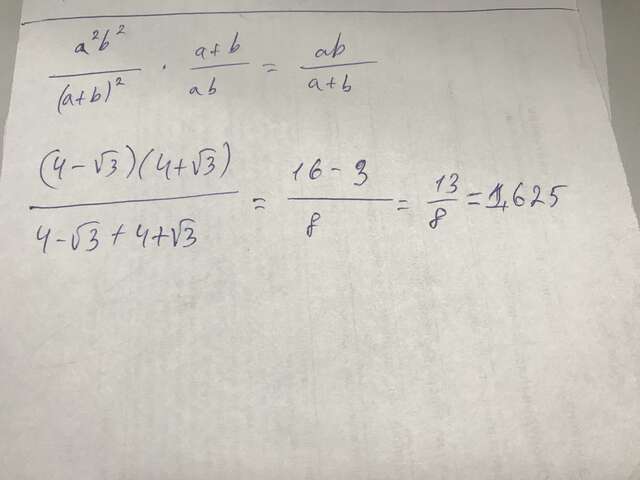 a²b²/(a+b)² · a+b/ab = ab/a+b
(4-√3)(4+√3)/4-√3+4+√3 = 16-3/8 = 13/8 = 1,625